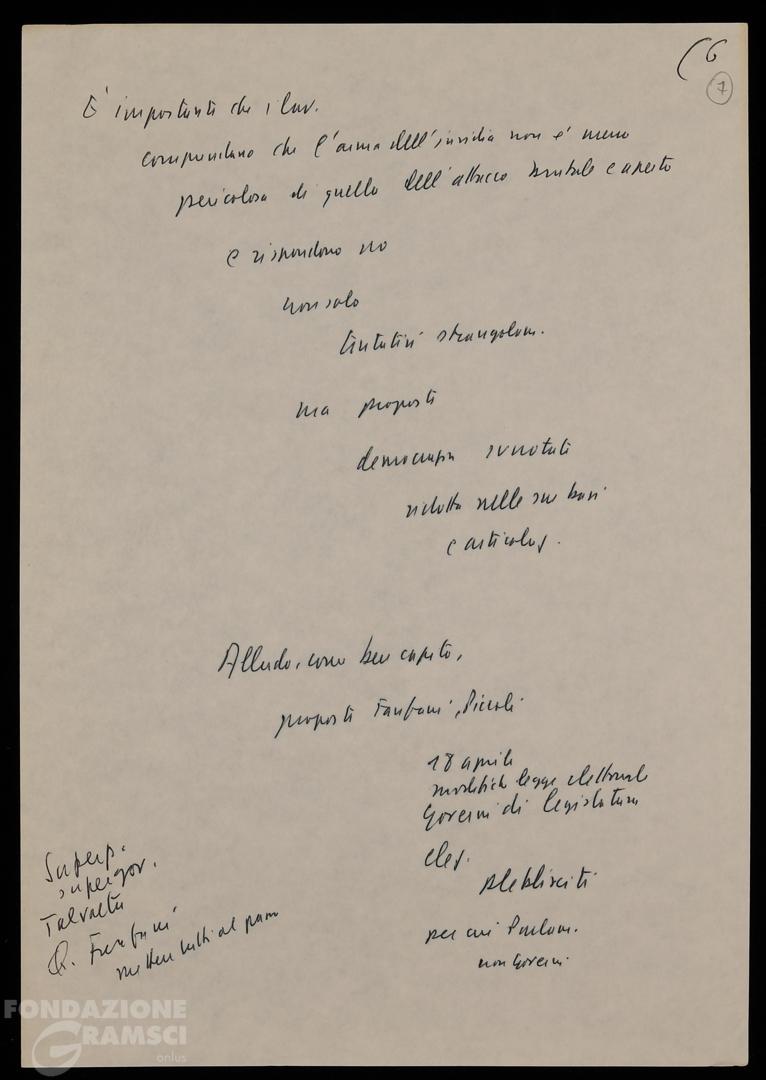 (6
7
E' importante che i lav.
comprendano che l'arma dell'insidia non è meno
pericolosa di quella dell'attacco brutale e aperto
e rispondono no
non solo
tentativi strangolam.
ma proposte
democrazia svuotata
ridotta nelle sue basi
e articolaz.
Alludo, come ben capite,
proposte Fanfani, Piccoli
18 aprile
modifiche legge elettorale
Governi di legislatura
elez.
plebisciti
per cui Parlam.
non Governi
Superp.
supergov.
Talvolta
Q. Fanfani
mettere tutti al passo
FONDAZIONE
GRAMSCI
onlus